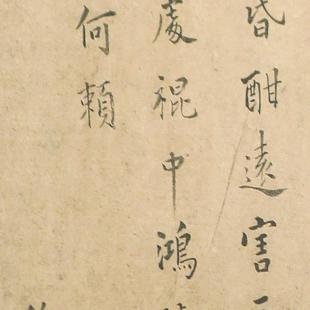 昏酣遠害
處裩中鴻
何賴